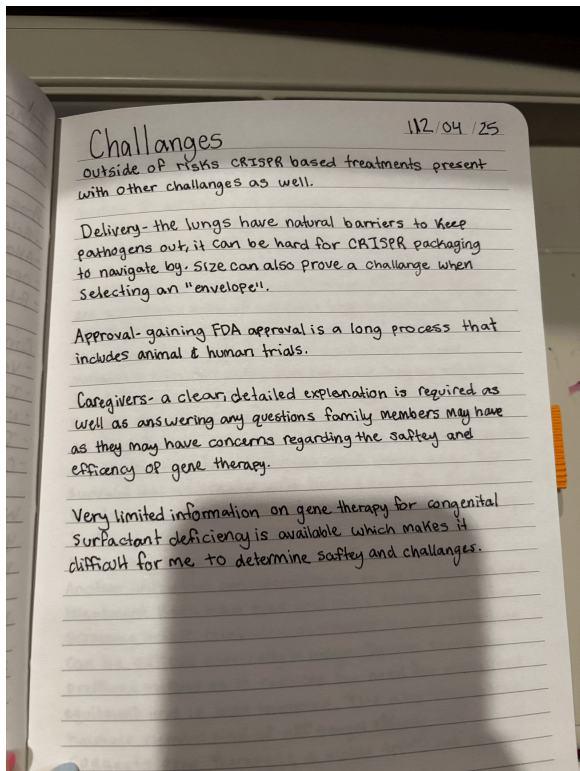 Challanges
112/04/25
outside of risks CRISPR based treatments present
with other challanges as well.
Delivery- the lungs have natural barriers to keep
pathogens out, it can be hard for CRISPR packaging
to navigate by. Size can also prove a challange when
selecting an "envelope".
Approval- gaining FDA approval is a long process that
includes animal & human trials.
Caregivers- a clear, detailed explenation is required as
well as answering any questions family members may have
as they may have concerns regarding the saftey and
efficency of gene therapy.
Very limited information on gene therapy for congenital
surfactant deficiency is available which makes it
difficult for me to determine saftey and challanges.